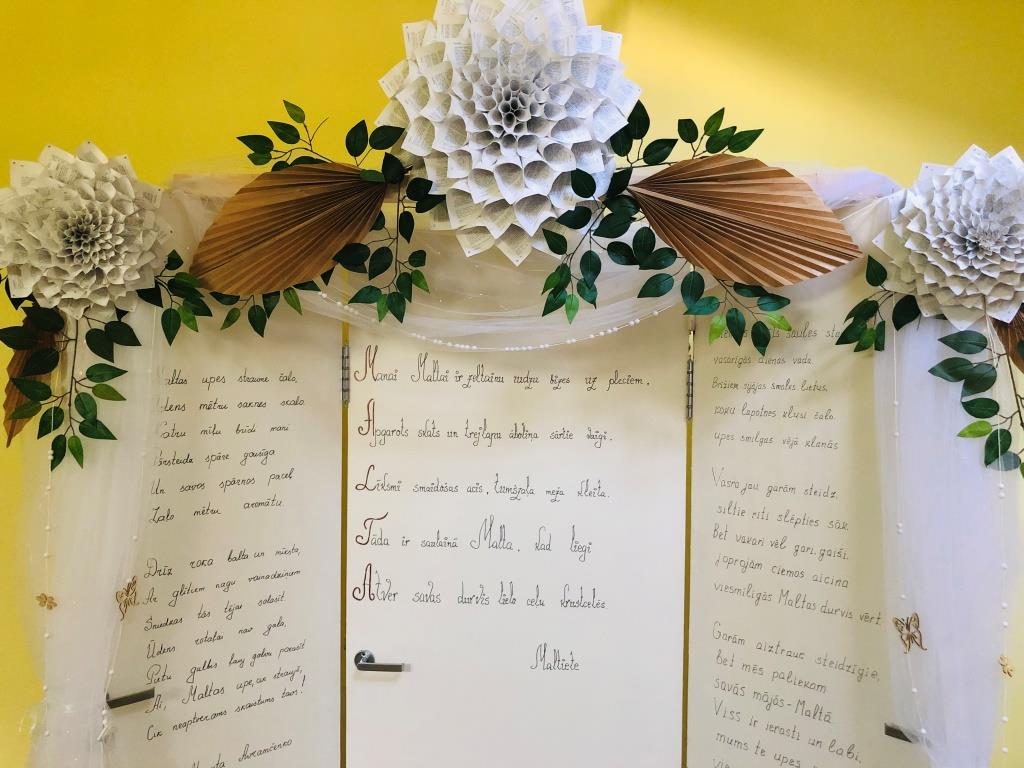 upes straume čalo,
mētru saknes skalo.
mīļu brīdi mani
spāre gausīga
Un savos spārnos paceļ
Zaļo mētru aromātu.
Drīz roka balta un mīksta,
Ar glītiem nagu vainadziņiem
Sniedzas tās tējai salasīt.
Ūdens rotaļai nav gala,
gulbis galvu
Ai, Maltas upe, ak straujā,
Cik neaptverams skaistums tavs!
Avramčenko
Manai Maltai ir zeltainu rudzu bizes uz pleciem,
Apgarots skats un trejlapu āboliņa sārtie vaigi.
Līksmi smaidošas acis, tumšzaļa meža kleita.
Tāda ir saulainā Malta, kad liegi
Atver savas durvis lielo ceļu krustcelēs
Maltiete
saules
vasarīgās dienas vada.
Brīžiem sijājas smalks lietus,
koku lapotnes klusi čalo.
upes smilgas vējā klanās
Vasra jau garām steidz,
siltie rīti slēpties sāk.
Bet vakari vēl gari, gaiši.
joprojām ciemos aicina
viesmīlīgās Maltas durvis vērt.
Garām aiztrauc steidzīgie,
bet mēs paliekam
savās mājās - Maltā
Viss ir ierasti un labi,
mums te upes